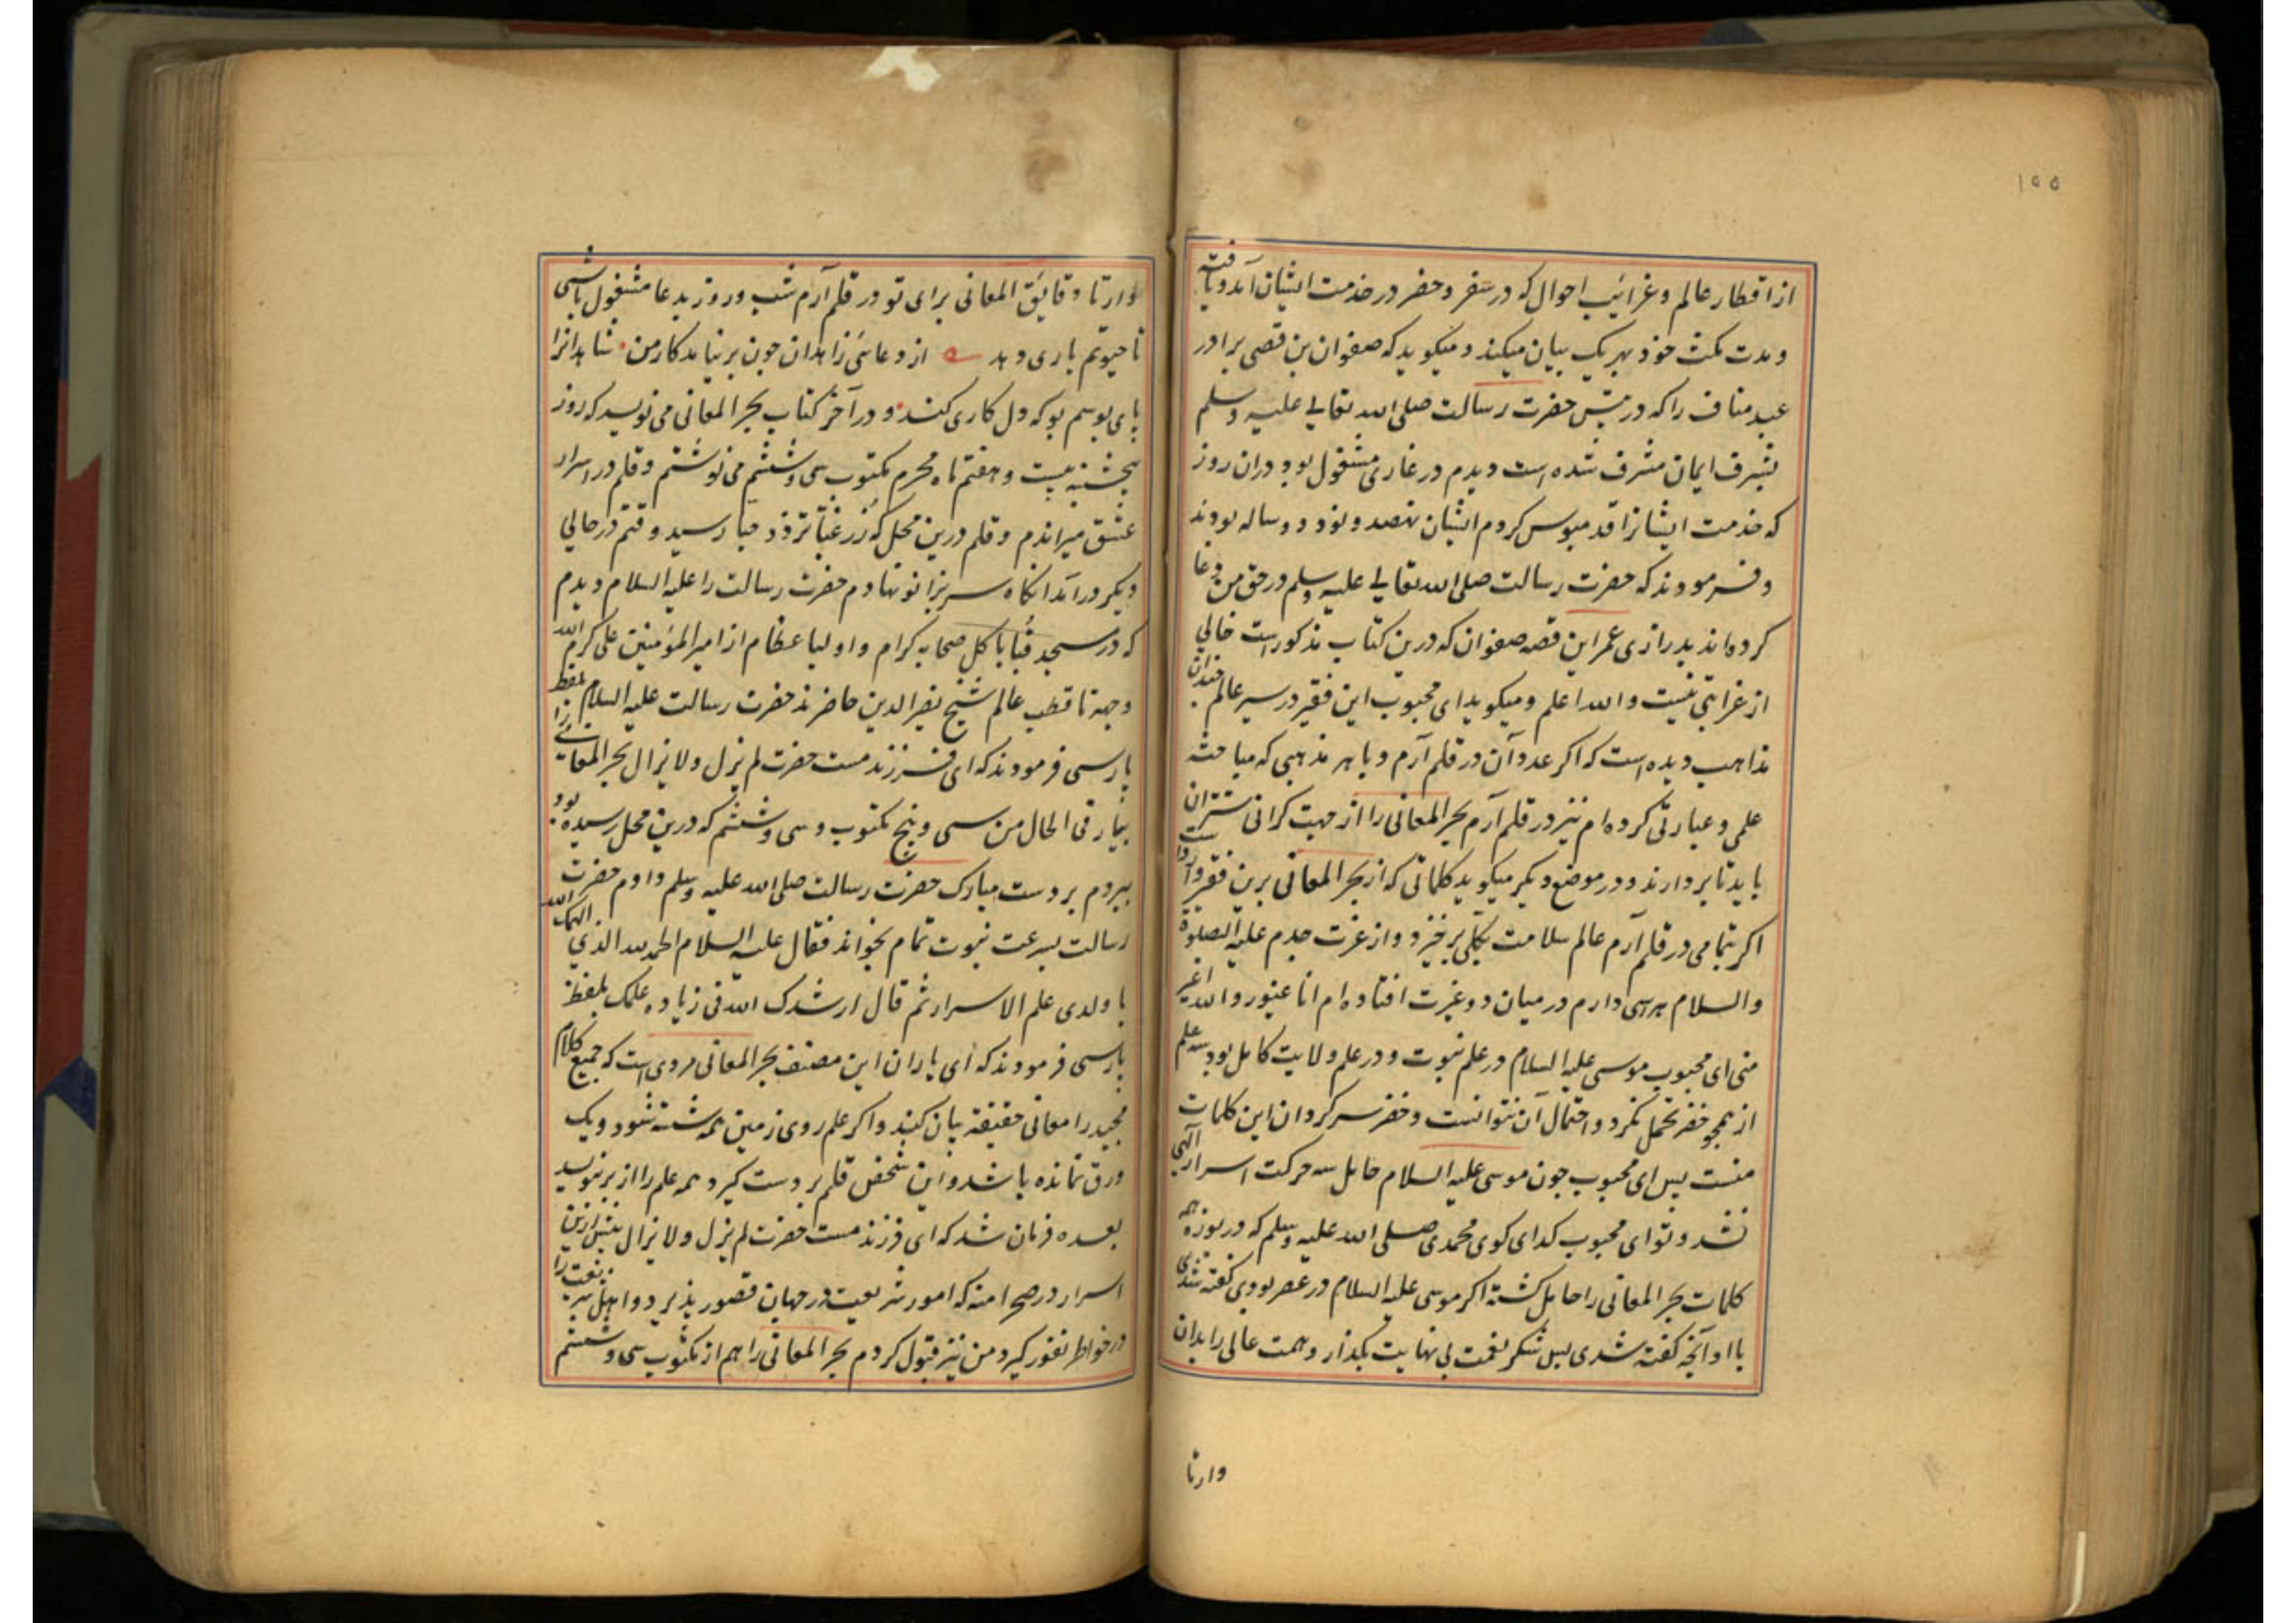 ۱۵۵
از اقطار عالم و غرائب احوال که در سفر و حضر در خدمت ایشان آمد و یافته
و مدت مکث خود بهر یک بیان میکند و میکوید که صفوان بن قصی برادر
عبد مناف را که در پیش حضرت رسالت صلی الله تعالی علیه وسلم
بشرف ایمان مشرف شده است دیدم در غاری مشغول بود دران روز
که خدمت ایشانرا قدمبوس کردم ایشان نهصد و نود و دو ساله بودند
و فرمودند که حضرت رسالت صلی الله تعالی علیه وسلم در حق من دعا
کرده اند بدرازی عمر این قصه صفوان که درین کتاب مذکور است خالی
از غرابتی نیست والله اعلم و میکوید ای محبوب این فقیر در سیر عالم چندان
مذاهب دیده است که اکر عدد آن در قلم آرم و با هر مذهبی که مباحثه
علمی و عبارتی کرده ام نیز در قلم آرم بحر المعانی را از جهت کرانی شتران
باید تا بردارند و در موضع دیکر میکوید کلماتی که از بحر المعانی برین فقیر وارد است
اکر بتمامی در قلم آرم عالم سلامت بکلی برخیزد و از غرت جدم علیه الصلوة
والسلام می ترسم دارم در میان دو غیرت افتاده ام انا غیور والله اغیر
منی ای محبوب موسی علیه السلام در علم نبوت و در علم ولایت کامل بود علم
از همچو خضر تحمل نکرد و احتمال آن نتوانست و خضر سرکردان این کلمات
منست پس ای محبوب چون موسی علیه السلام حامل سه حرکت اسرار الهی
نشد و تو ای محبوب کدای کوی محمدی صلی الله علیه وسلم که دریوزه همه
کلمات بحر المعانی را حامل کشته اکر موسی علیه السلام در عصر بودی کفته شدی
با او آنچه کفته شدی پس شکر نعمت بی نهایت بکذار و همت عالی را بدان
وارتا
وارتا دقایق المعانی برای تو در قلم آرم شب و روز بدعا مشغول باشی
تا حیوتم یاری دهد از دعائی زاهدان چون برنیامد کار من شاهدانرا
پای بوسم بو که دل کاری کند و در آخر کتاب بحر المعانی می نویسد که روز
پنجشنبه بیست و هفتم ماه محرم مکتوب سی و ششم می نوشتم و قلم در اسرار
عشق میراندم و قلم درین محل که زر غبا تزدد حبا رسید وقتم در حالی
دیکر درآمد انکاه سر بزانو نهادم حضرت رسالت را علیه السلام دیدم
که در مسجد قبا با کل صحابه کرام و اولیا عظام از امیر المؤمنین علی کرم الله
وجهه تا قطب عالم شیخ نصیر الدین حاضرند حضرت رسالت علیه السلام بلفظ
پارسی فرمودند که ای فرزند مست حضرت لم یزل و لا یزال بحر المعانی را
بیار فی الحال من سی و پنج مکتوب و سی و ششم که درین محل رسیده بود
ببردم بر دست مبارک حضرت رسالت صلی الله علیه وسلم دادم حضرت
رسالت بسرعت نبوت تمام بخواند فقال علیه السلام الحمد لله الذی الهمک الله
یا ولدی علم الاسرار ثم قال ارشدک الله فی زیاده علمک بلفظ
پارسی فرمودند که ای یاران این مصنف بحر المعانی مردی است که جمیع کلام
مجید را معانی حقیقه بیان کند و اکر علم روی زمین همه شسته شود و یک
ورق نمانده باشد و این شخص قلم بر دست کیرد همه علم را از بر بنویسد
بعده فرمان شد که ای فرزند مست حضرت لم یزل و لا یزال بیش ازین
اسرار در صحرا منه که امور شریعت در جهان قصور پذیرد و اهل شریعت را
در خواطر نفور کیرد من نیز قبول کردم بحر المعانی را هم از مکتوب سی و ششم